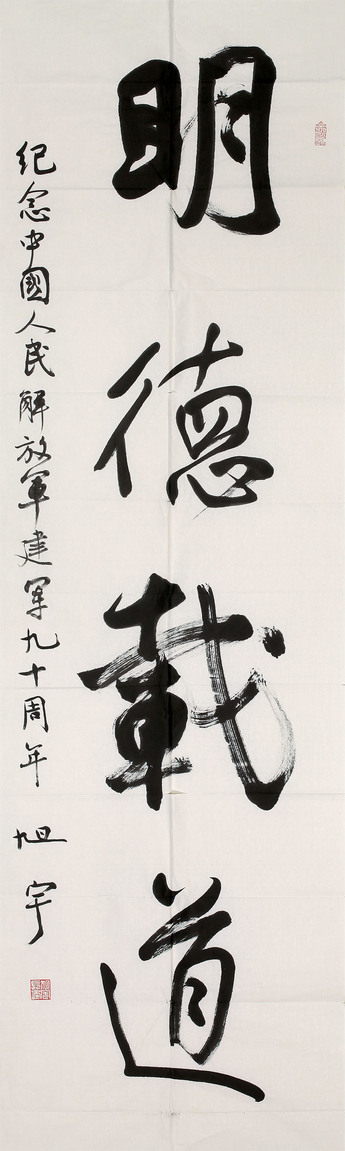 明德載道
纪念中國人民解放军建军九十周年
旭宇